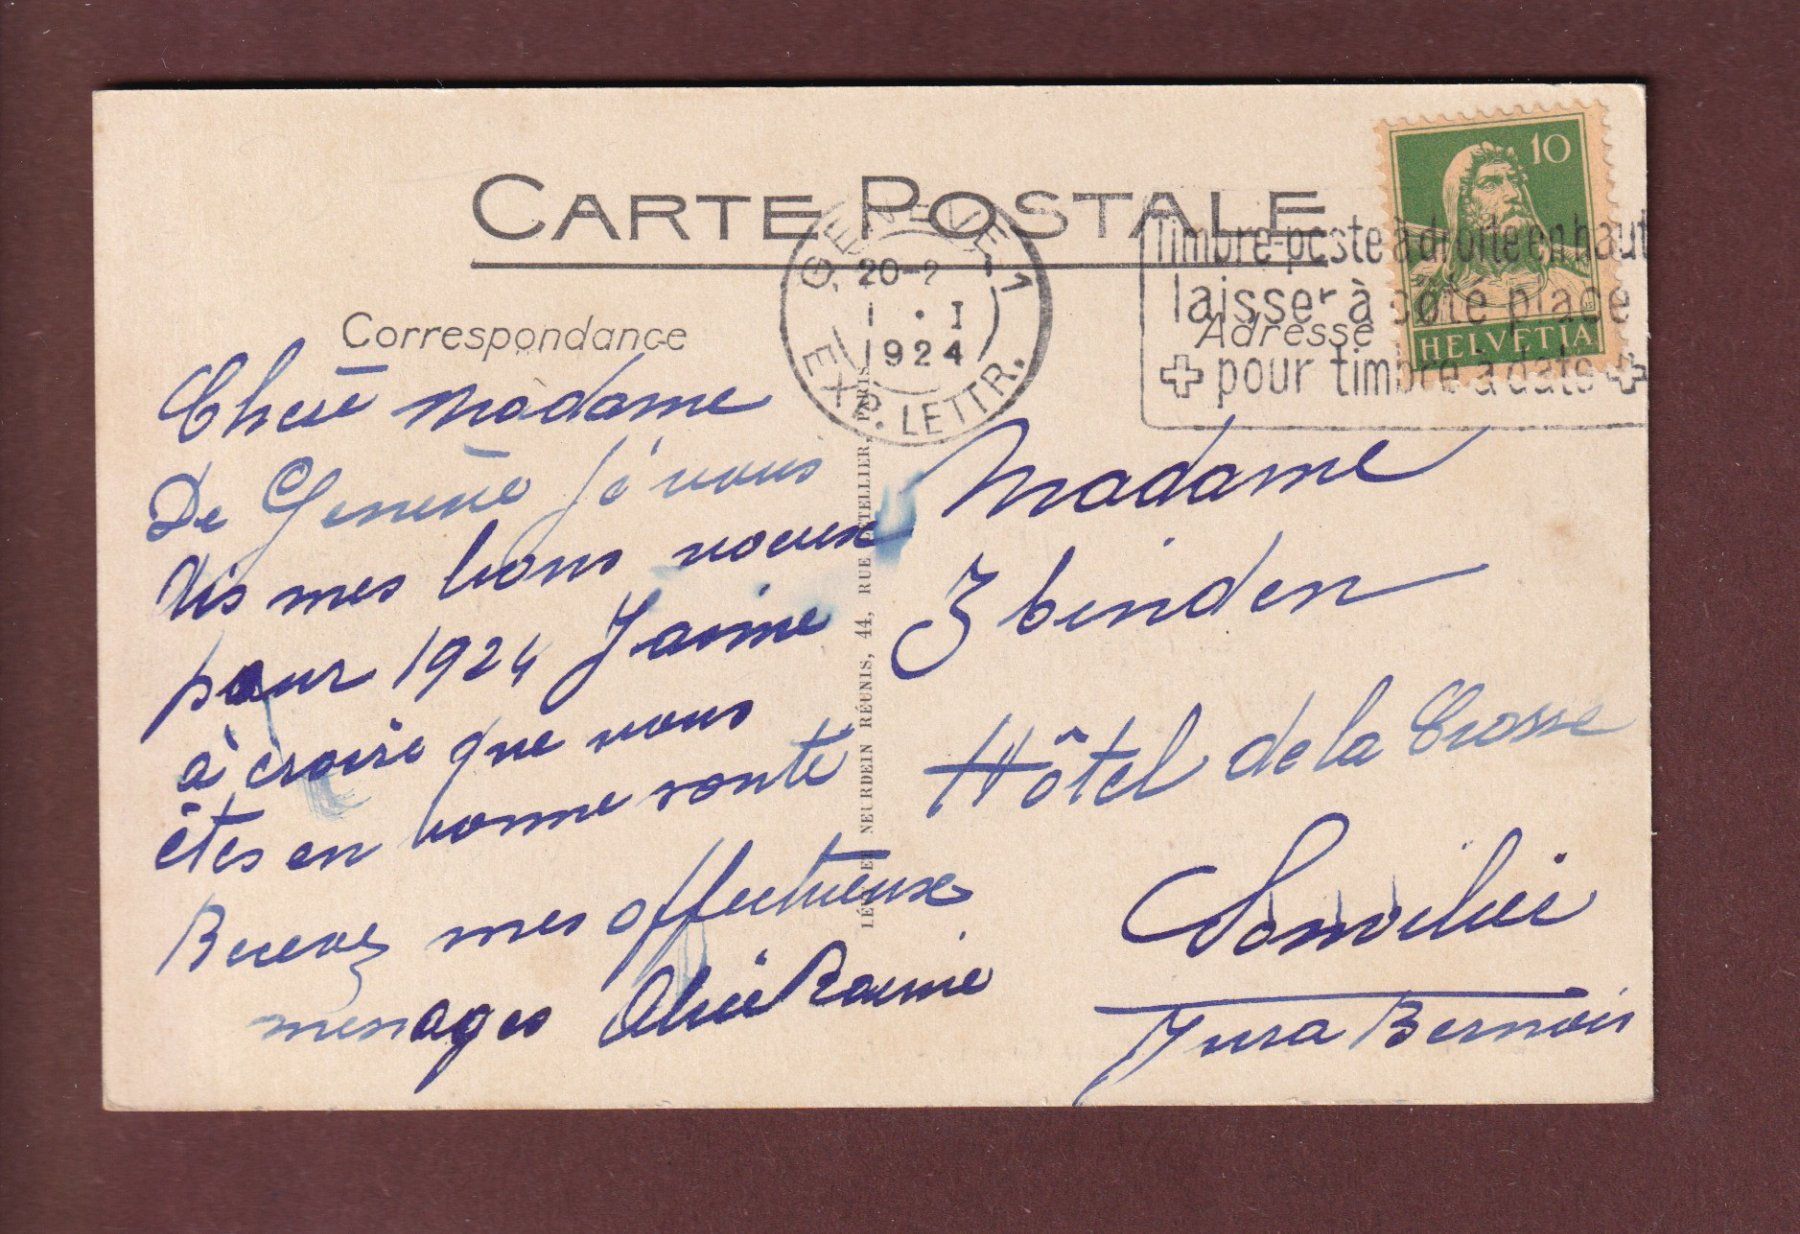 CARTE POSTALE
Correspondance
Adresse
GENÈVE 1
20-2
1 . I
1924
EXP. LETTR.
Timbre-poste à droite en haut
laisser à côté place
pour timbre à date
10
HELVETIA
Chere Madame
De Geneve je vous
dis mes bons voeux
pour 1924 J'aime
à croire que vous
êtes en bonne santé
Recevez mes affectueux
messages Alice
Madame
Zbinden
Hôtel de la Crosse
Sonvilier
Jura Bernois
NEURDEIN RÉUNIS, 44, RUE LETELLIER, PARIS